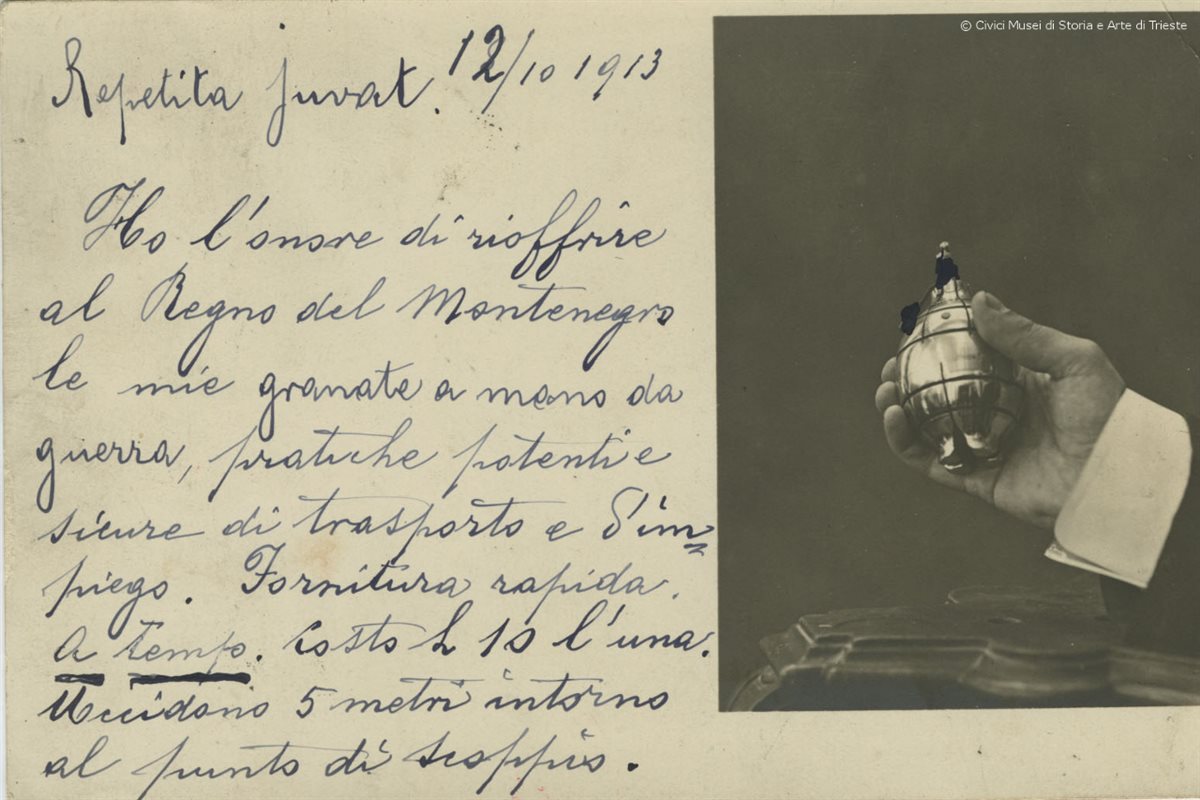 © Civici Musei di Storia e Arte di Trieste
Repetita juvat. 12/10 1913
Ho l'onore di rioffrire
al Regno del Montenegro
le mie granate a mano da
guerra, pratiche potenti e
sicure di trasporto e d'im=
piego. Fornitura rapida.
A tempo. Costo L 10 l'una.
Uccidono 5 metri intorno
al punto di scoppio.